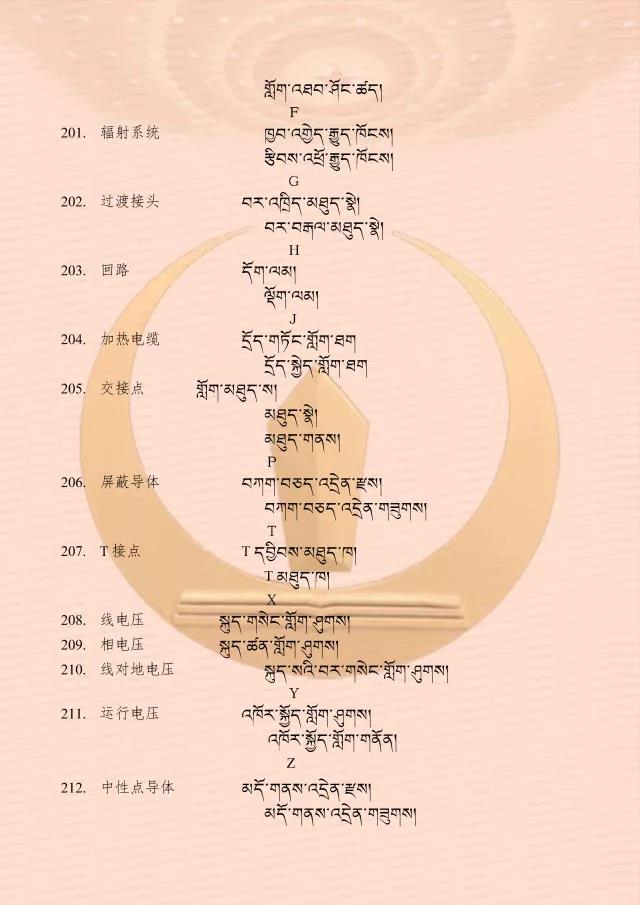 གློག་འཐབ་ཤོང་ཚད།
F
201. 辐射系统 ཁྱབ་འགྱེད་རྒྱུད་ཁོངས།
རྩིབས་འཕྲོ་རྒྱུད་ཁོངས།
G
202. 过渡接头 བར་འཁྲིད་མཐུད་སྣེ།
བར་བརྒལ་མཐུད་སྣེ།
H
203. 回路 དོག་ལམ།
ལྡོག་ལམ།
J
204. 加热电缆 དྲོད་གཏོང་གློག་ཐག
དྲོད་སྐྱེད་གློག་ཐག
205. 交接点 གློག་མཐུད་ས།
མཐུད་སྣེ།
མཐུད་གནས།
P
206. 屏蔽导体 བཀག་བཅད་འདྲེན་རྫས།
བཀག་བཅད་འདྲེན་གཟུགས།
T
207. T 接点 T དབྱིབས་མཐུད་ཁ།
T མཐུད་ཁ།
X
208. 线电压 སྐུད་གསེང་གློག་ཤུགས།
209. 相电压 སྐུད་ཚན་གློག་ཤུགས།
210. 线对地电压 སྐུད་སའི་བར་གསེང་གློག་ཤུགས།
Y
211. 运行电压 འཁོར་སྐྱོད་གློག་ཤུགས།
འཁོར་སྐྱོད་གློག་གནོན།
Z
212. 中性点导体 མདོ་གནས་འདྲེན་རྫས།
མདོ་གནས་འདྲེན་གཟུགས།